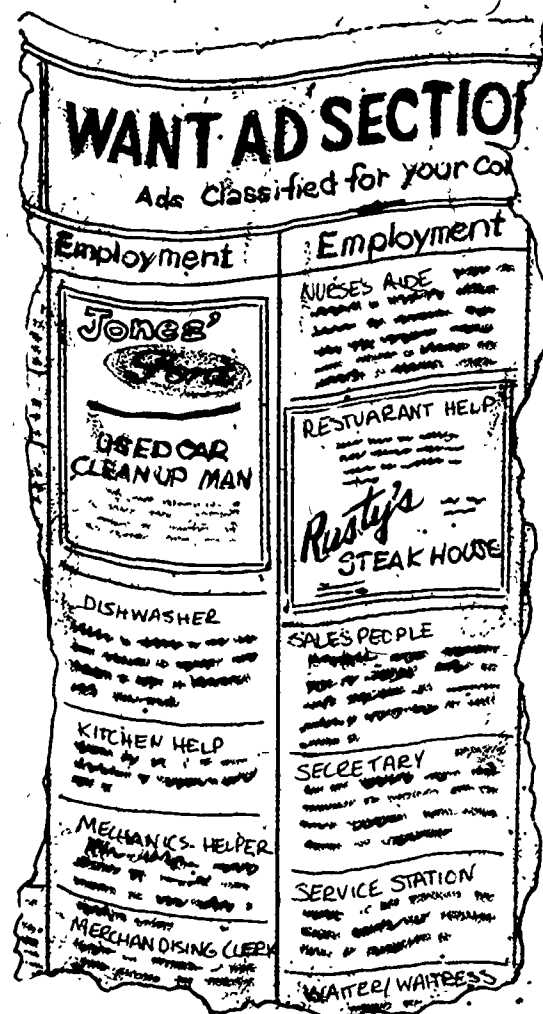 WANT AD SECTIO
Ads Classified for your Co
Employment
Jones'
Ford
USED CAR
CLEAN UP MAN
DISHWASHER
KITCHEN HELP
MECHANICS-HELPER
MERCHANDISING CLERK
Employment
NURSE'S AIDE
RESTUARANT HELP
Rusty's
STEAK HOUSE
SALESPEOPLE
SECRETARY
SERVICE STATION
WAITER/WAITRESS